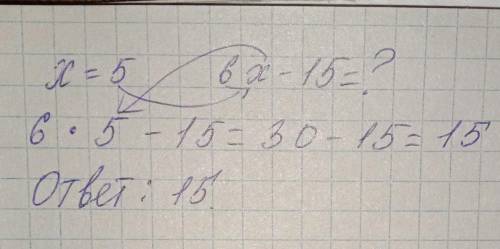 x = 5 6x - 15 = ?
6 · 5 - 15 = 30 - 15 = 15
Ответ: 15